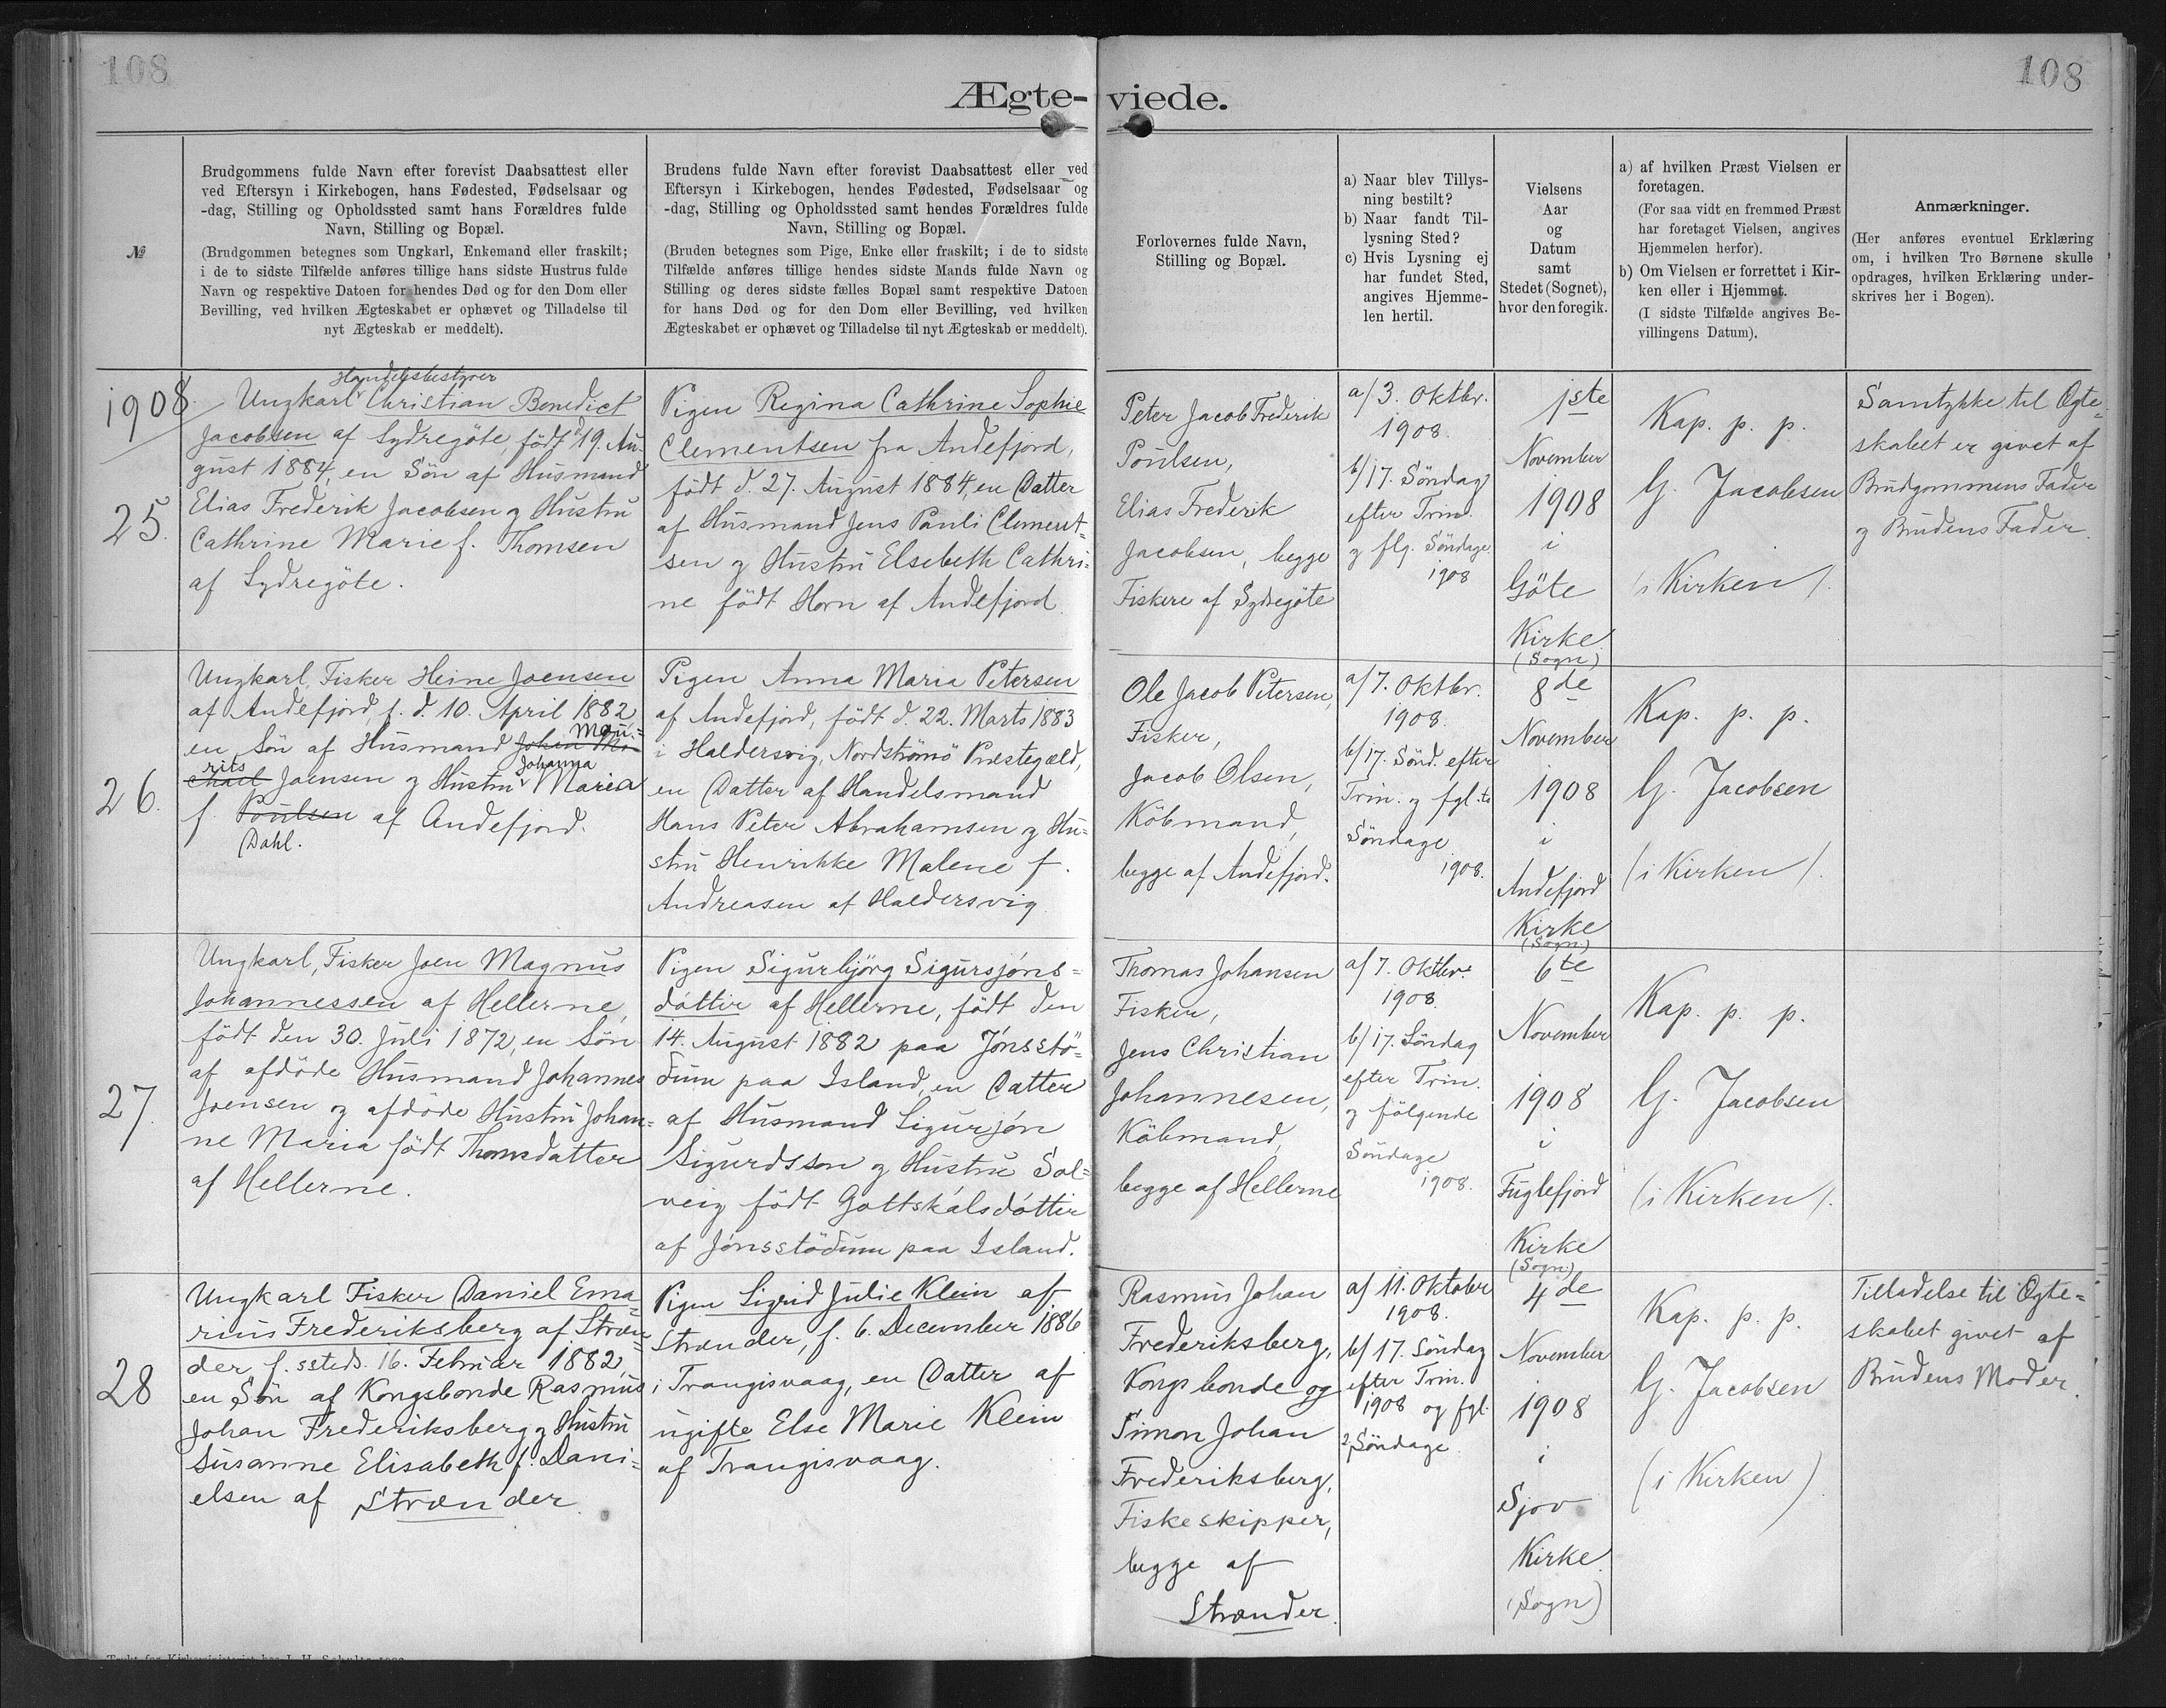 108
108
Ægte-viede.
№
Brudgommens fulde Navn efter forevist Daabsattest eller
ved Eftersyn i Kirkebogen, hans Fødested, Fødselsaar og
-dag, Stilling og Opholdssted samt hans Forældres fulde
Navn, Stilling og Bopæl.
(Brudgommen betegnes som Ungkarl, Enkemand eller fraskilt;
i de to sidste Tilfælde anføres tillige hans sidste Hustrus fulde
Navn og respektive Datoen for hendes Død og for den Dom eller
Bevilling, ved hvilken Ægteskabet er ophævet og Tilladelse til
nyt Ægteskab er meddelt).
Brudens fulde Navn efter forevist Daabsattest eller ved
Eftersyn i Kirkebogen, hendes Fødested, Fødselsaar og
-dag, Stilling og Opholdssted samt hendes Forældres fulde
Navn, Stilling og Bopæl.
(Bruden betegnes som Pige, Enke eller fraskilt; i de to sidste
Tilfælde anføres tillige hendes sidste Mands fulde Navn og
Stilling og deres sidste fælles Bopæl samt respektive Datoen
for hans Død og for den Dom eller Bevilling, ved hvilken
Ægteskabet er ophævet og Tilladelse til nyt Ægteskab er meddelt).
Forlovernes fulde Navn,
Stilling og Bopæl.
a) Naar blev Tillys-
ning bestilt?
b) Naar fandt Til-
lysning Sted?
c) Hvis Lysning ej
har fundet Sted,
angives Hjemme-
len hertil.
Vielsens
Aar
og
Datum
samt
Stedet (Sognet),
hvor den foregik.
a) af hvilken Præst Vielsen er
foretagen.
(For saa vidt en fremmed Præst
har foretaget Vielsen, angives
Hjemmelen herfor).
b) Om Vielsen er forrettet i Kir-
ken eller i Hjemmet.
(I sidste Tilfælde angives Be-
villingens Datum).
Anmærkninger.
(Her anføres eventuel Erklæring
om, i hvilken Tro Børnene skulle
opdrages, hvilken Erklæring under-
skrives her i Bogen).
1908
25.
Handelsbestyrer
Ungkarl Christian Benedict
Jacobsen af Sydregöte, född d. 19. Au-
gust 1884, en Sön af Husmand
Elias Frederik Jacobsen og Hustru
Cathrine Marie f. Thomsen
af Sydregöte.
Pigen Regina Cathrine Sophie
Clementsen fra Andefjord,
född d. 27. August 1884, en Datter
af Husmand Jens Pauli Clement=
sen og Hustru Elsebeth Cathri=
ne född Horn af Andefjord
Peter Jacob Frederik
Poulsen,
Elias Frederik
Jacobsen, begge
Fiskere af Sydregöte
a/ 3. Oktbr.
1908.
b/ 17. Söndag
efter Trin.
og flg. Söndage
1908
1ste
November
1908
i
Göte
Kirke
(Sogn)
Kap. p. p.
G. Jacobsen
(i Kirken).
Samtykke til Ægte=
skabet er givet af
Brudgommens Fader
og Brudens Fader.
26.
Ungkarl, Fisker Heine Joensen
af Andefjord, f. d. 10. April 1882,
Mau=
en Sön af Husmand Johan Mi-
rits
Johanna
chael Joensen og Hustru Maria
f. Poulsen af Andefjord.
Dahl.
Pigen Anna Maria Petersen
af Andefjord, född d. 22. Marts 1883
i Haldersvig, Nordströmö Præstegæld,
en Datter af Handelsmand
Hans Peter Abrahamsen og Hu=
stru Henrikke Malene f.
Andreasen af Haldersvig
Ole Jacob Petersen,
Fisker,
Jacob Olsen,
Köbmand,
begge af Andefjord.
a/ 7. Oktbr.
1908.
b/ 17. Sönd. efter
Trin. og fgl.
Söndage
1908.
8de
November
1908
i
Andefjord
Kirke
(Sogn)
Kap. p. p.
G. Jacobsen
(i Kirken).
27.
Ungkarl, Fisker Joen Magnus
Johannessen af Hellerne,
född den 30. Juli 1872, en Sön
af afdöde Husmand Johannes
Joensen og afdöde Hustru Johan=
ne Maria född Thomsdatter
af Hellerne.
Pigen Sigurbjörg Sigursjóns=
dóttir af Hellerne, född den
14. August 1882 paa Jónsstö=
dum paa Island, en Datter
af Husmand Sigurjón
Sigurdsson og Hustru Sol=
veig född Gottskálsdóttir
af Jónsstödum paa Island.
Thomas Johansen
Fisker,
Jens Christian
Johannesen,
Köbmand,
begge af Hellerne
a/ 7. Oktbr.
1908.
b/ 17. Söndag
efter Trin.
og fölgende
Söndage
1908.
6te
November
1908
i
Fuglefjord
Kirke
(Sogn)
Kap. p. p.
G. Jacobsen
(i Kirken).
28
Ungkarl Fisker Daniel Ema=
rius Frederiksberg af Stræn=
der, f. ssteds. 16. Februar 1882,
en Sön af Kongsbonde Rasmus
Johan Frederiksberg og Hustru
Susanne Elisabeth f. Dani=
elsen af Strænder.
Pigen Sigrid Julie Klein af
Strænder, f. 6. December 1886
i Trangisvaag, en Datter af
ugifte Else Marie Klein
af Trangisvaag.
Rasmus Johan
Frederiksberg,
Kongsbonde og
Simon Johan
Frederiksberg,
Fiskeskipper,
begge af
Strænder.
a/ 11. Oktober
1908.
b/ 17. Söndag
efter Trin.
1908 og fgl.
2 Söndage.
4de
November
1908
i
Sjov
Kirke
(Sogn)
Kap. p. p.
G. Jacobsen
(i Kirken)
Tilladelse til Ægte=
skabet givet af
Brudens Moder.